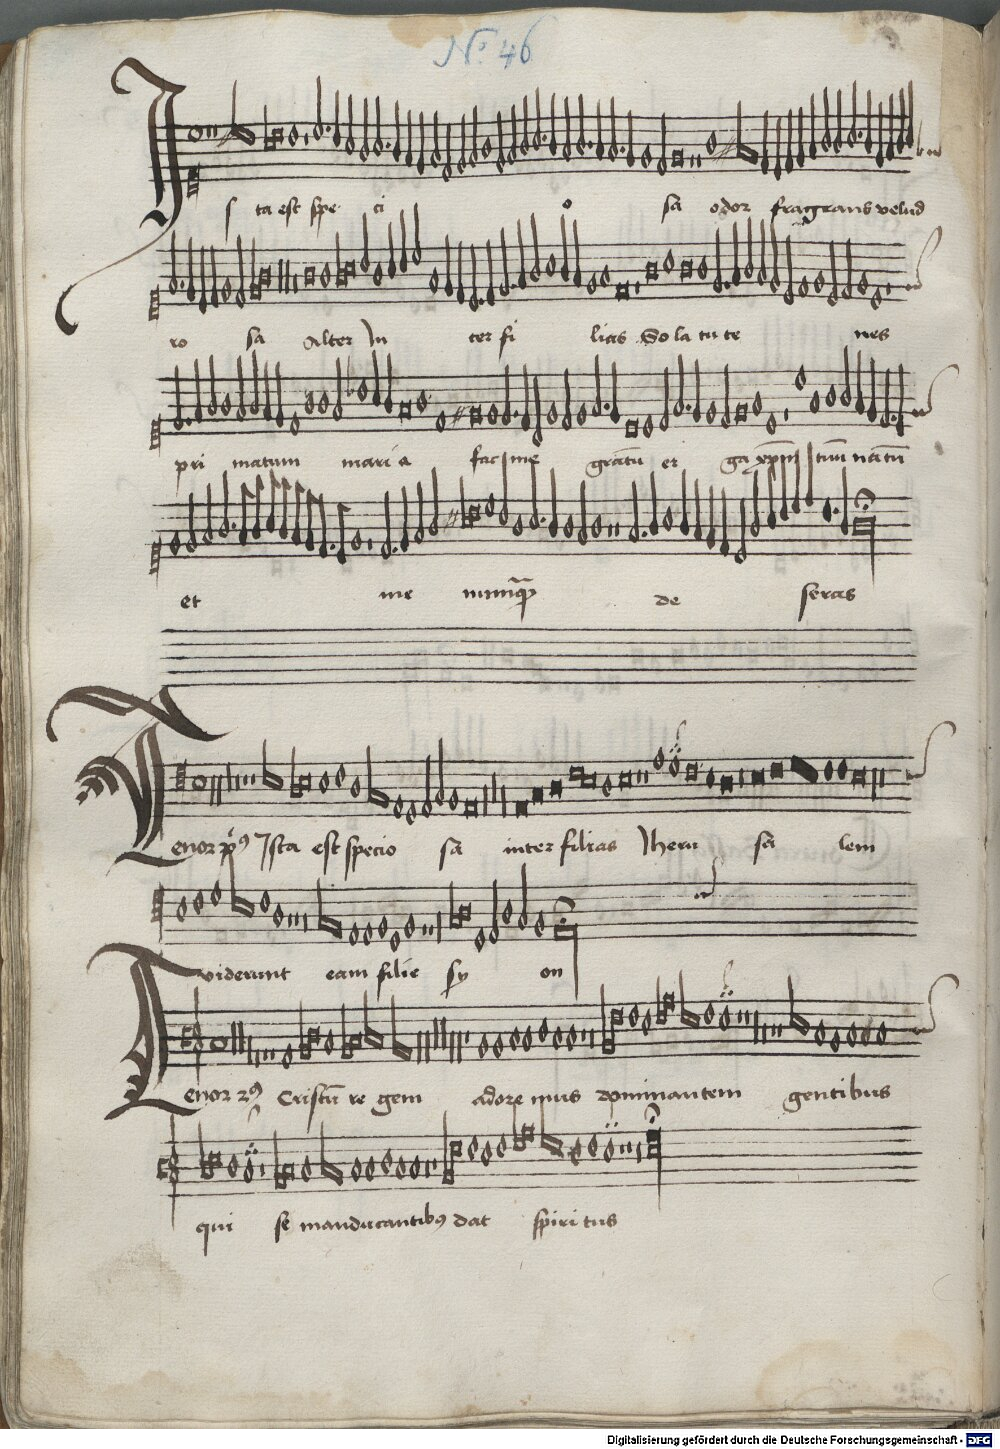 N° 46
Ista est speci o sa odor fragrans velud
ro sa Alter In ter fi lias Sola tu te nes
pri matum mari a fac me gratū er ga xpm tuū natū
et me nunq̄ de seras
Tenor p9 Ista est specio sa inter filias Iheru sa lem
viderunt eam filie sy on
Tenor 29 Cristū re gem adore mus dominantem gentibus
qui se manducantib9 dat spiri tus
Digitalisierung gefördert durch die Deutsche Forschungsgemeinschaft - DFG